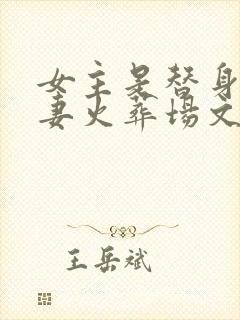 女主是替身
妻火葬场文
王岳斌